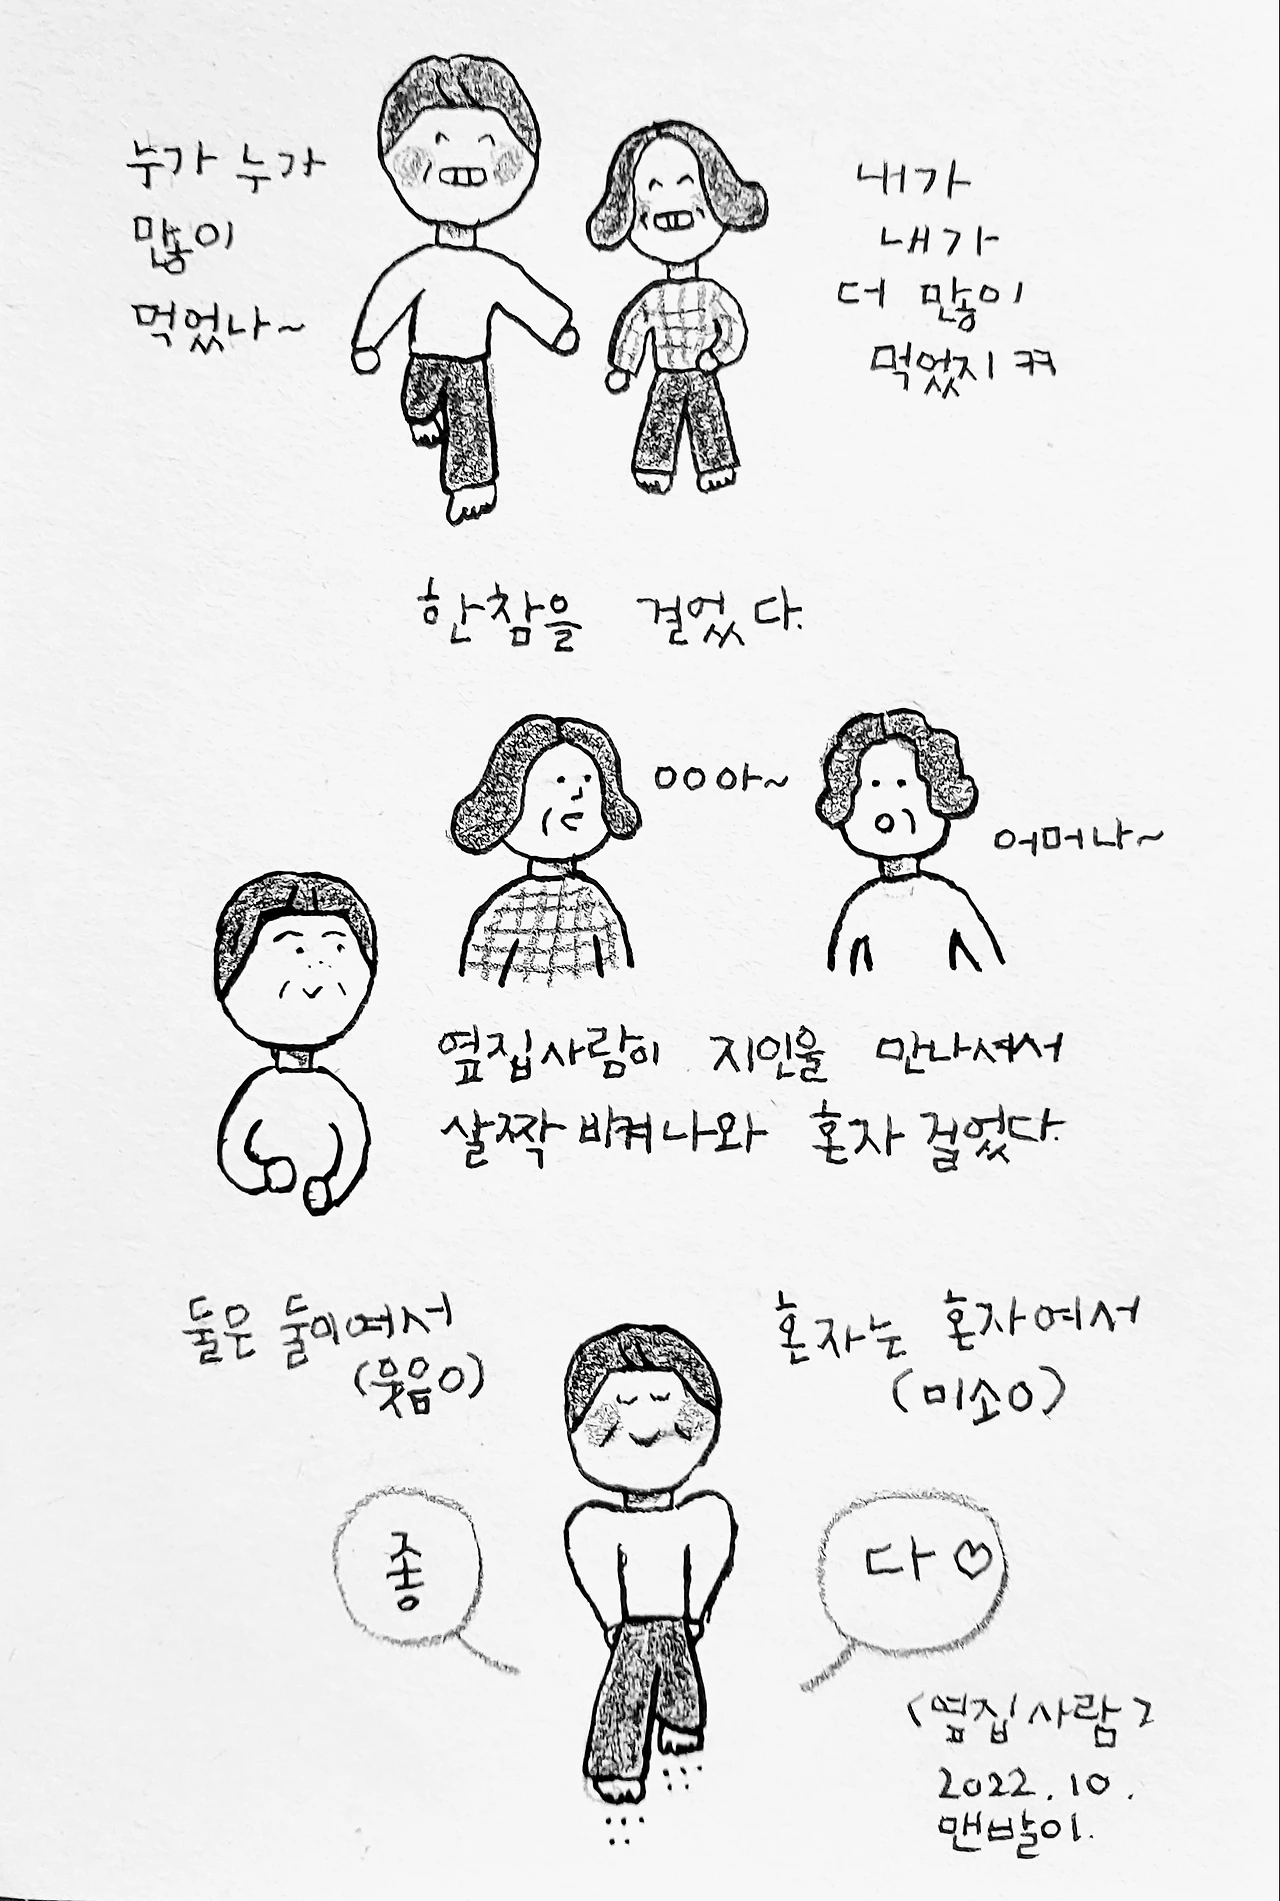 누가 누가
많이
먹었나~
내가
내가
더 많이
먹었지 ㅋㅋ
한참을 걸었다.
ㅇㅇ아~
어머나~
옆집사람이 지인을 만나셔서
살짝 비켜나와 혼자 걸었다.
둘은 둘이여서
(웃음이)
혼자는 혼자여서
(미소이)
좋
다♡
<옆집사람>
2022.10.
맨발이.